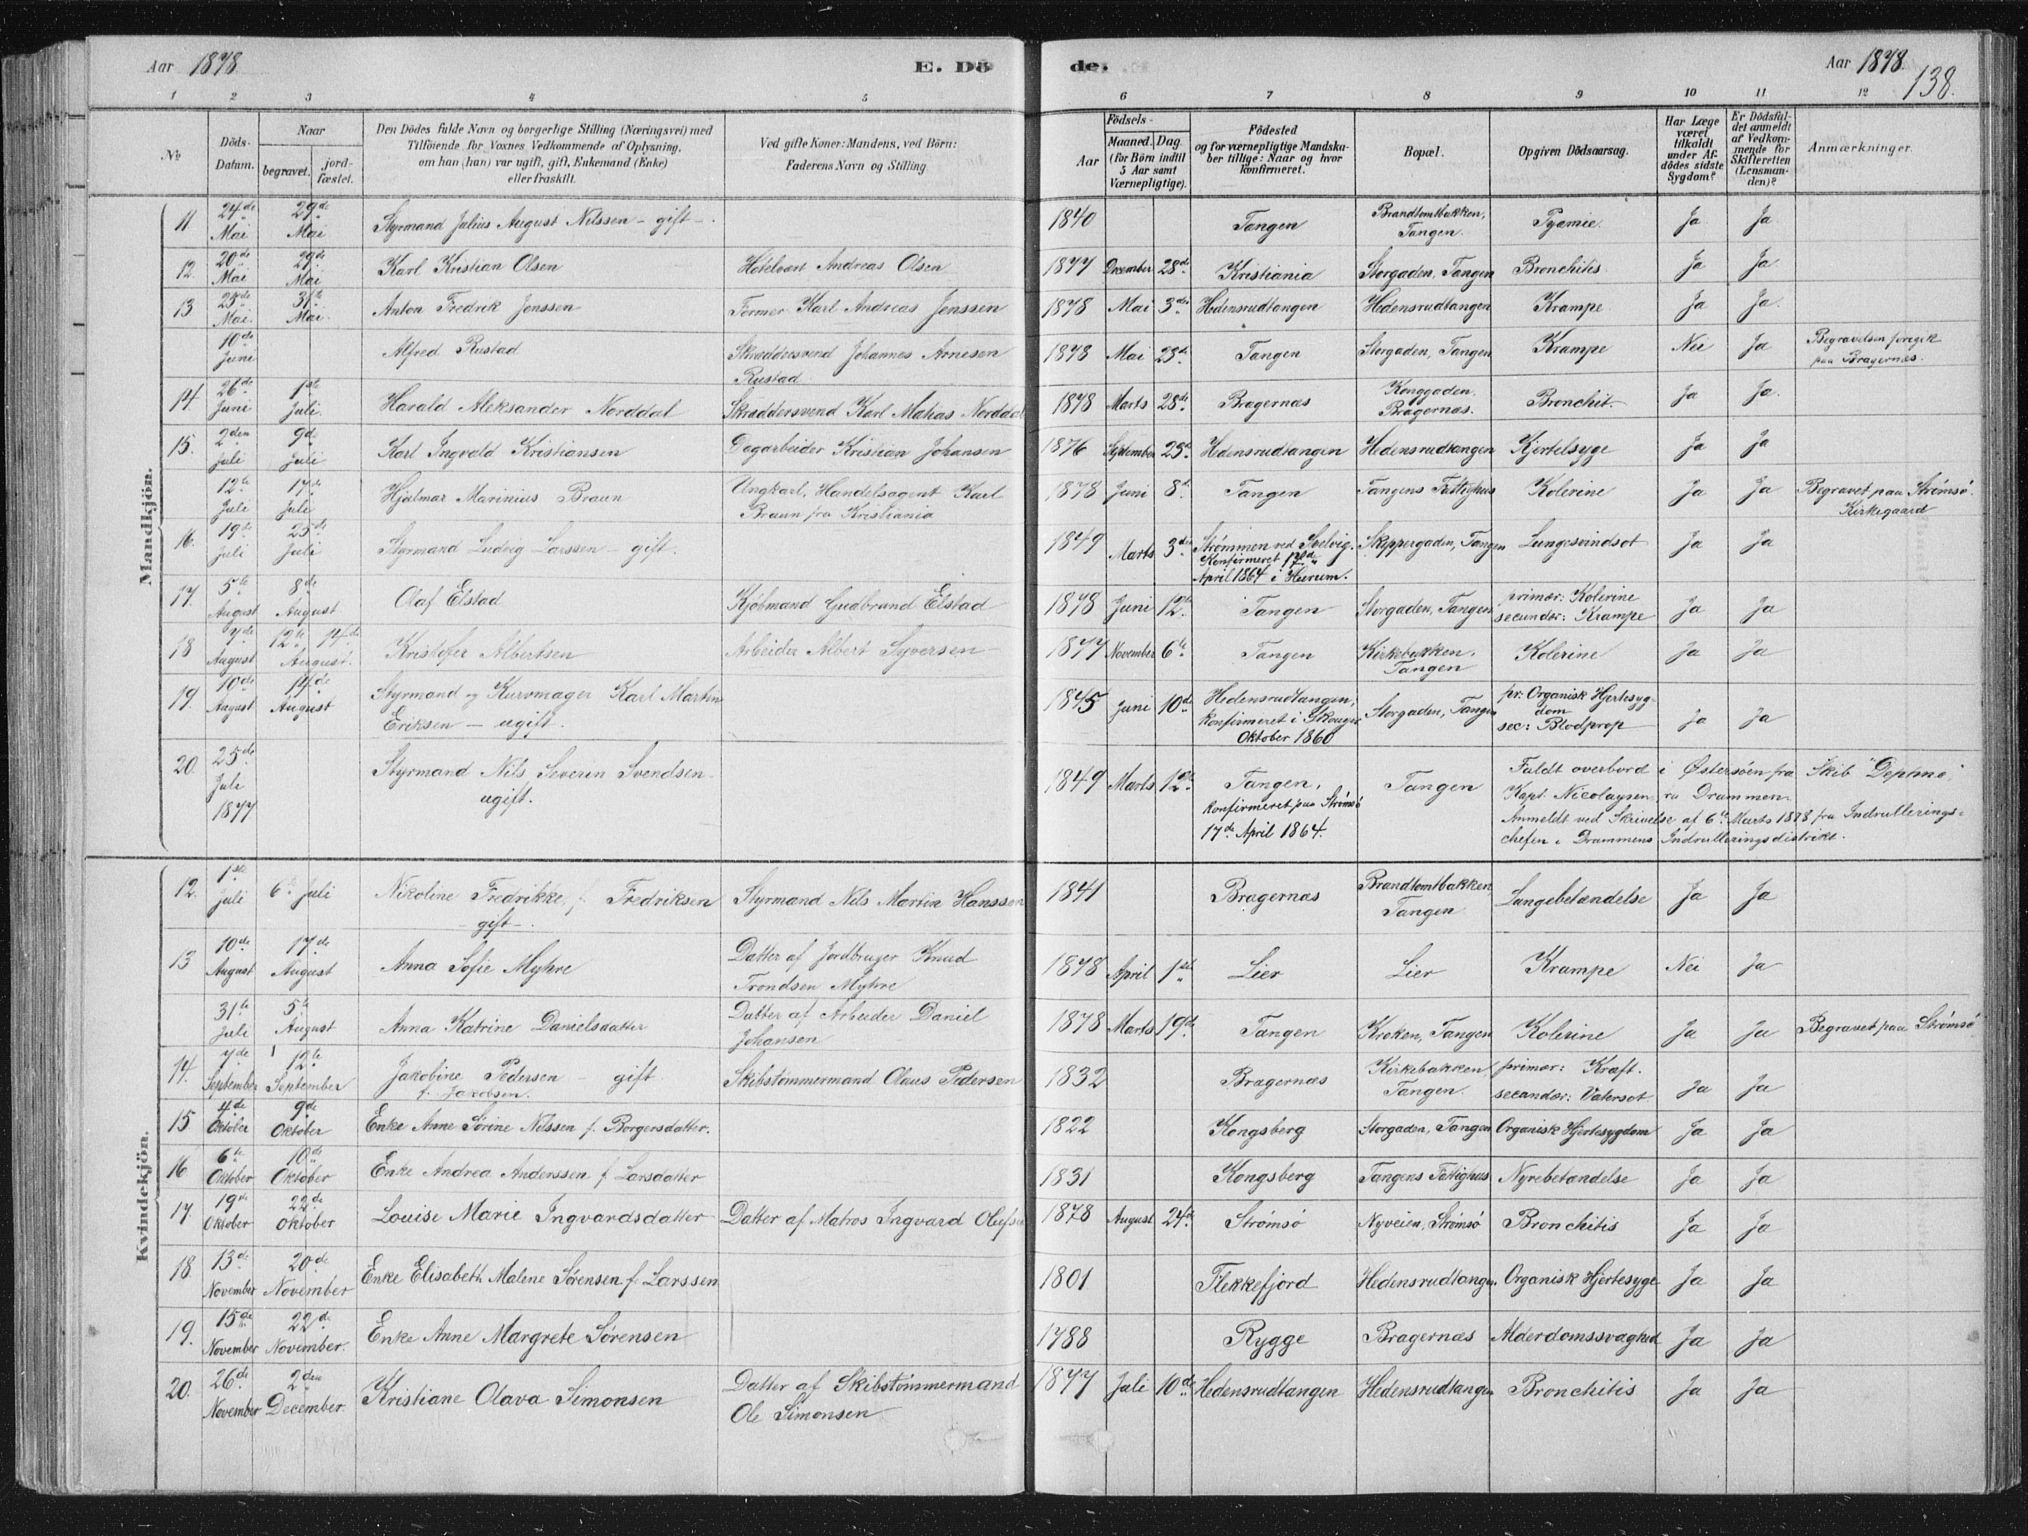 Aar 1878.
E. Dö
de.
Aar 1878.
138.
1 2 3 4 5 6 7 8 9 10 11 12
No
Döds-Datum.
Naar
begravet.
jord-fæstet.
Den Dödes fulde Navn og borgerlige Stilling (Næringsvei) med
Tilföiende for Voxnes Vedkommende af Oplysning,
om han (hun) var ugift, gift, Enkemand (Enke)
eller fraskilt.
Ved gifte Koner: Mandens, ved Börn:
Faderens Navn og Stilling.
Födsels-
Aar
Maaned. Dag.
(for Börn indtil
5 Aar samt
Værnepligtige).
Födested
og for værnepligtige Mandska-
ber tillige: Naar og hvor
konfirmeret.
Bopæl.
Opgiven Dödsaarsag.
Har Læge
været
tilkaldt
under Af-
dödes sidste
Sygdom?
Er Dödsfal-
det anmeldt
af Vedkom-
mende for
Skifteretten
(Lensman-
den)?
Anmærkninger.
Mandkjön.
11 24de Mai 29de Mai Styrmand Julius August Nilssen – gift – 1840 Tangen Brandtomtbakken, Tangen. Pyæmie. Ja Ja
12. 20de Mai 29de Mai Karl Kristian Olsen Hotelvært Andreas Olsen 1877 December 28de Kristiania Storgaden, Tangen Bronchitis. Ja Ja
13 23de Mai. 31te Mai. Anton Fredrik Jenssen Former Karl Andreas Jenssen 1878 Mai 3de Hedensrudtangen Hedensrudtangen Krampe Ja Ja.
10de Juni Alfred Rustad Skræddersvend Johannes Arnesen Rustad. 1878 Mai 23de Tangen Storgaden, Tangen Krampe Nei Ja Begravelsen foregik paa Bragernæs.
14 26de Juni 1ste Juli. Harald Aleksander Norddal Skræddersvend Karl Matias Norddal 1878 Marts 28de Bragernæs Konggaden. Bragernæs. Bronchit. Ja Ja.
15. 2den Juli 9de Juli Karl Ingvald Kristiansen Dagarbeider Kristian Johansen 1876 September 25de Hedensrudtangen Hedensrudtangen Kjertelsyge Ja Ja
12te Juli 17de Juli Hjalmar Marinius Braun Ungkarl, Handelsagent Karl Braun fra Kristiania 1878 Juni 8de Tangen Tangens Fattighus Kolerine Ja Ja Begravet paa Strømsø Kirkegaard
16. 19de Juli 25de Juli Styrmand Ludvig Larssen – gift. 1849 Marts 3de Strømmen ved Svelvig. Konfirmeret 17de April 1864 i Hurum. Skippergaden, Tangen Lungesvindsot Ja Ja
17. 5te August 8de August. Olaf Elstad Kjøbmand Gudbrand Elstad 1878 Juni 12te Tangen Storgaden, Tangen primær: Kolerine secundær: Krampe Ja Ja
18 7de August 12te 14de August. Kristofer Albertsen Arbeider Albert Syversen 1877 November 6te Tangen Kirkebakken. Tangen Kolerine Ja Ja
19. 10de August 14de August Styrmand og Kurvmager Karl Martin Eriksen – ugift. 1845 Juni 10de Hedensrudtangen, konfirmeret i Skouger Oktober 1860 Storgaden, Tangen pr: Organisk Hjertesygdom sec: Blodprop Ja Ja
20. 25de Juli 1877 Styrmand Nils Severin Svendsen. ugift. 1849 Marts 12te Tangen, konfirmeret paa Strømsø 17de April 1864. Tangen Faldt overbord i Østersøen fra Skib "Daphne,"
Kapt. Nicolaysen, fra Drammen.
Anmeldt ved Skrivelse af 6te Marts 1878 fra Indrullerings-
chefen i Drammens Indrulleringsdistrikt.
Kvindekjön.
12. 1ste Juli 6te Juli Nikoline Fredrikke, f. Fredriksen – gift –. Styrmand Nils Martin Hanssen 1841 Bragernæs Brandtomtbakken Tangen Lungebetændelse Ja Ja
13 10de August 17de August Anna Sofie Myhre Datter af Jordbruger Knud Trondsen Myhre 1878 April 1ste Lier Lier Krampe Nei Ja
31te Juli 5te August Anna Katrine Danielsdatter Datter af Arbeider Daniel Johansen 1878 Marts 19de Tangen Kroken, Tangen Kolerine Ja Ja Begravet paa Strømsø
14. 7de September 12te September Jakobine Pedersen – gift f. Jacobsen. Skibstømmermand Olaus Pedersen 1832 Bragernæs Kirkebakken Tangen. primær: Kræft. secundær: Vatersot Ja Ja
15 4de Oktober 9de Oktober Enke Anne Sørine Nilssen f. Borgersdatter. 1822 Kongsberg Storgaden, Tangen Organisk Hjertesygdom Ja Ja
16 6te Oktober 10de Oktober Enke Andrea Anderssen f. Larsdatter 1831 Kongsberg Tangens Fattighus Nyrebetændelse Ja Ja
17 19de Oktober 22de Oktober Louise Marie Ingvardsdatter Datter af Matros Ingvard Olufsen 1878 August 24de Strømsø Nyveien, Strømsø Bronchitis Ja Ja
18. 13de November 20de November Enke Elisabeth Maline Sørensen f. Larssen 1801 Flekkefjord Hedensrudtangen. Organisk Hjertesyge Ja Ja
19. 15de November 22de November. Enke Anne Margrete Sørensen 1788 Rygge Bragernæs Alderdomssvaghed Ja Ja
20. 26de November 2den December. Kristiane Olava Simonsen Datter af Skibstømmermand Ole Simonsen 1877 Juli 10de Hedensrudtangen Hedensrudtangen Bronchitis Ja Ja